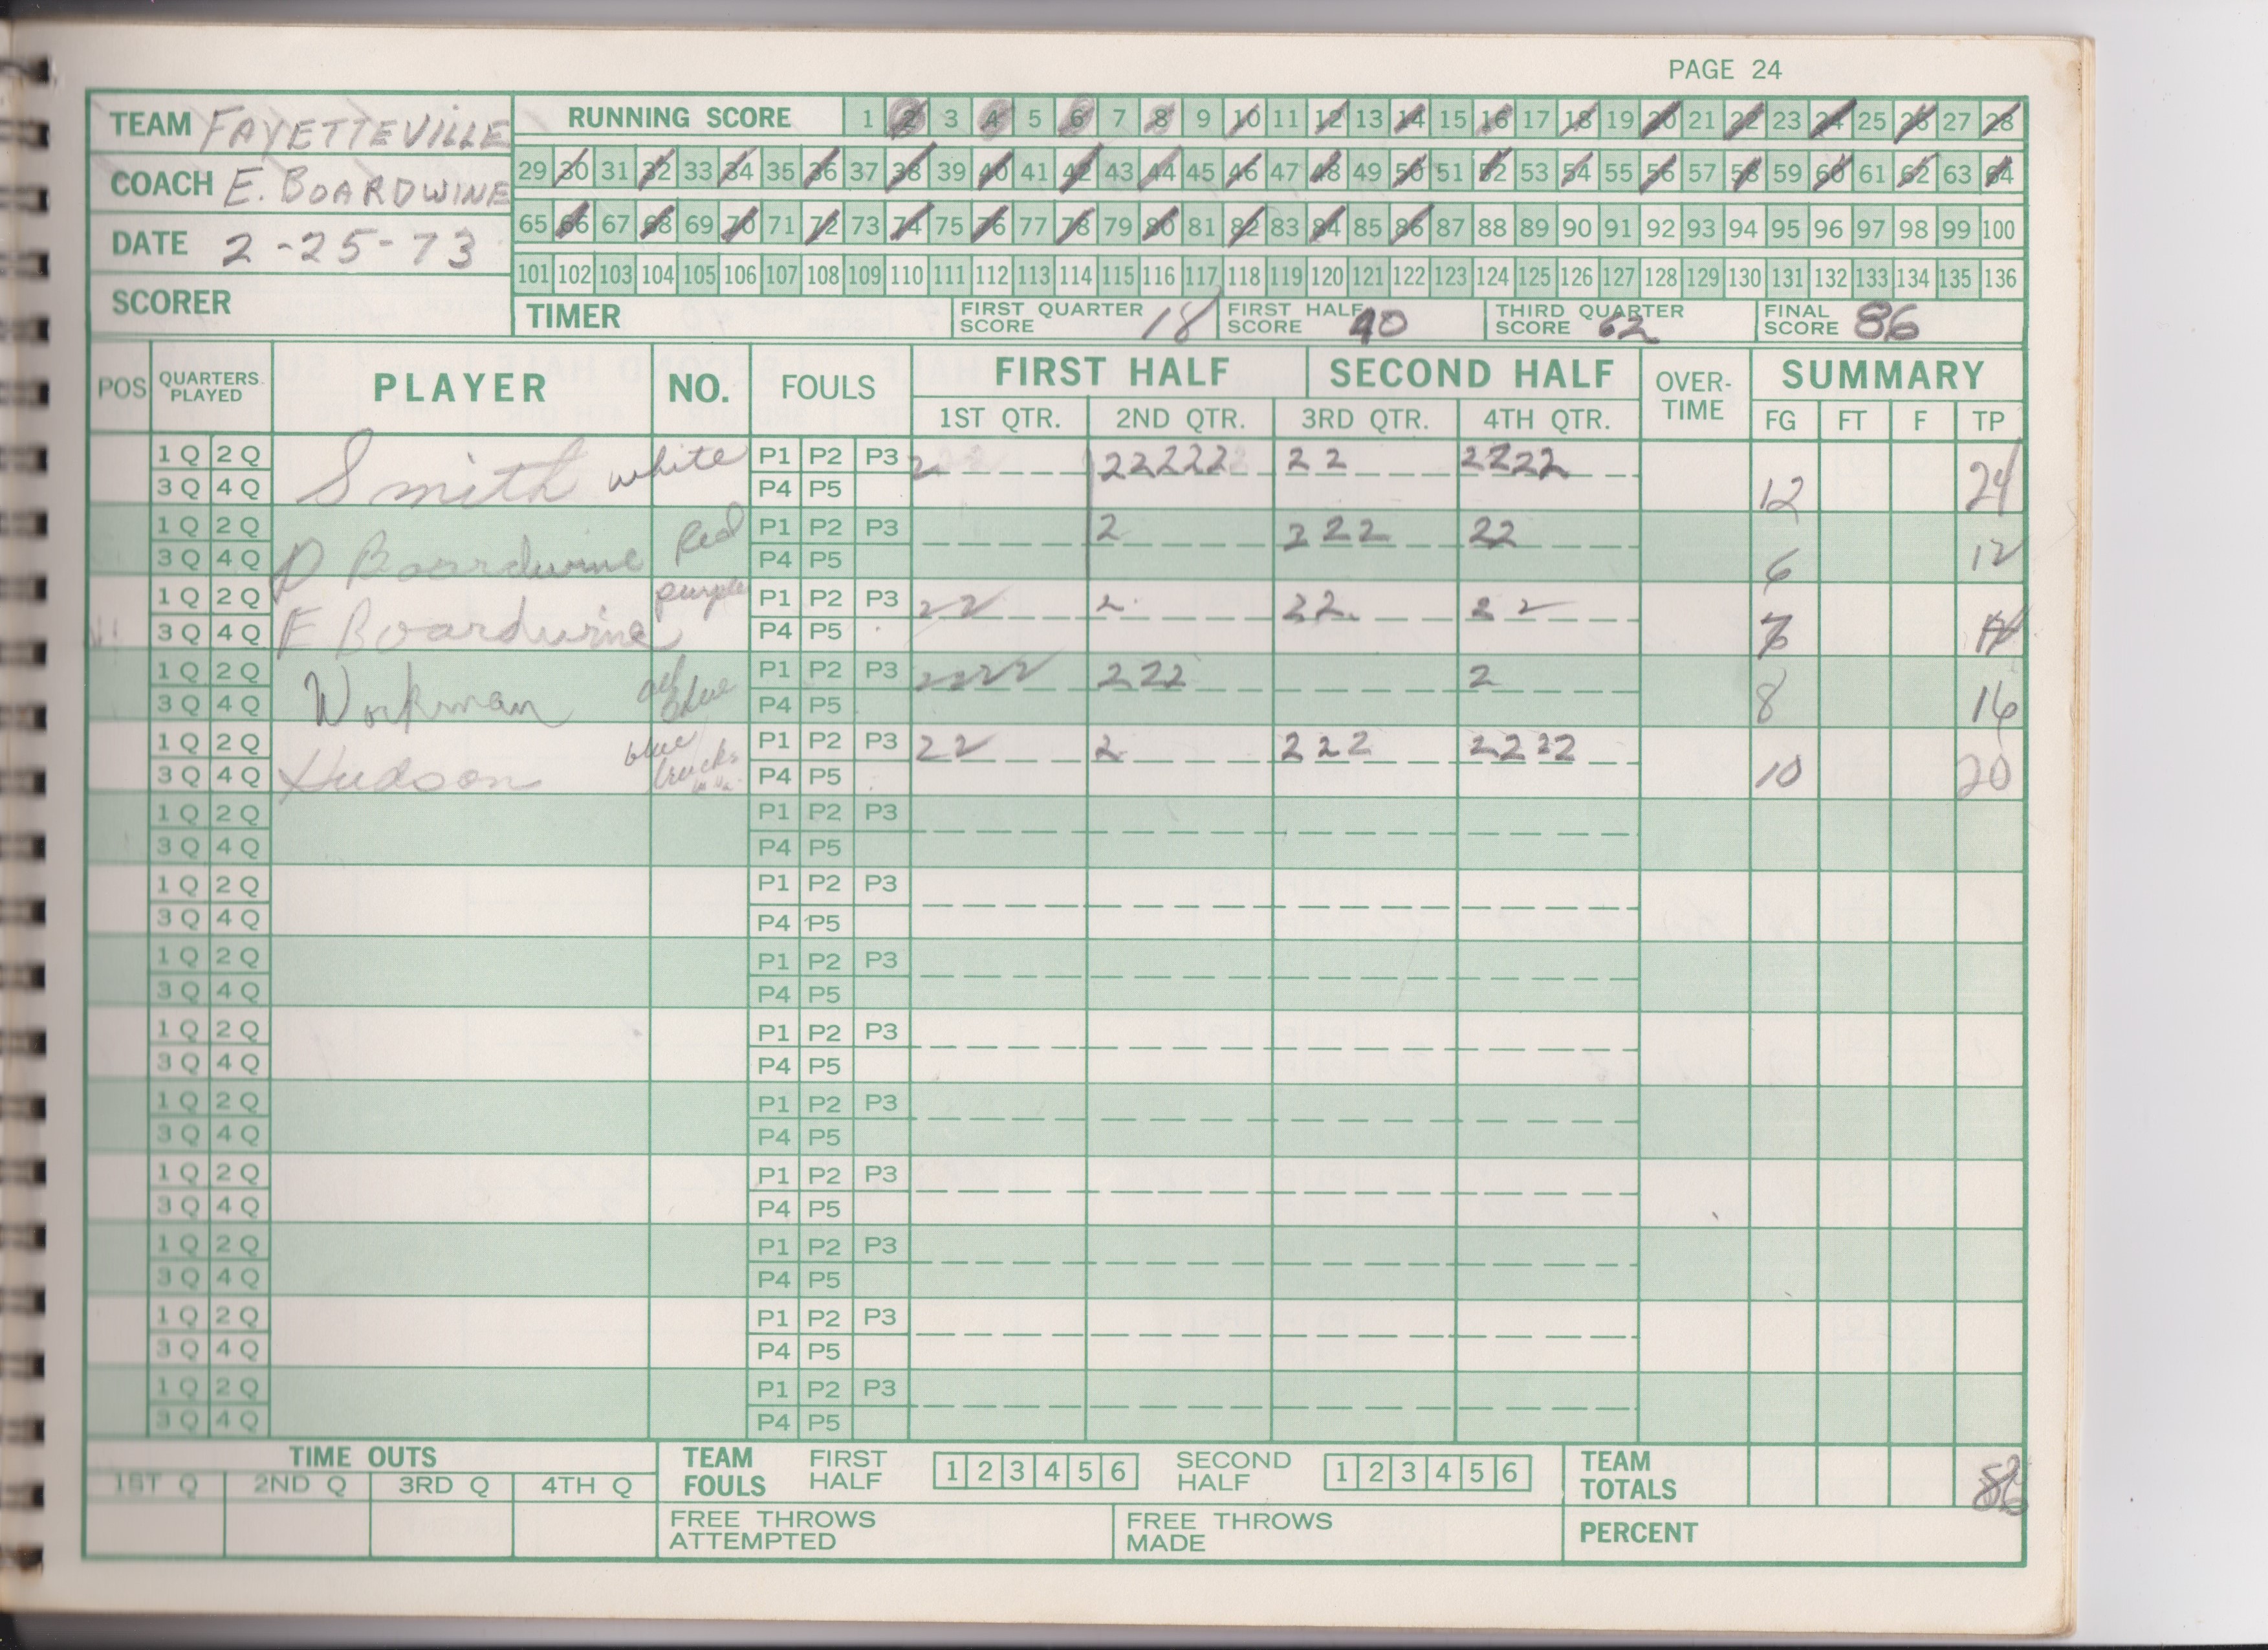 PAGE 24
TEAM FAYETTEVILLE
RUNNING SCORE 1 2 3 4 5 6 7 8 9 10 11 12 13 14 15 16 17 18 19 20 21 22 23 24 25 26 27 28
COACH E. BOARDWINE
29 30 31 32 33 34 35 36 37 38 39 40 41 42 43 44 45 46 47 48 49 50 51 52 53 54 55 56 57 58 59 60 61 62 63 64
DATE 2-25-73
65 66 67 68 69 70 71 72 73 74 75 76 77 78 79 80 81 82 83 84 85 86 87 88 89 90 91 92 93 94 95 96 97 98 99 100
101 102 103 104 105 106 107 108 109 110 111 112 113 114 115 116 117 118 119 120 121 122 123 124 125 126 127 128 129 130 131 132 133 134 135 136
SCORER
TIMER
FIRST QUARTER SCORE 18
FIRST HALF SCORE 40
THIRD QUARTER SCORE 62
FINAL SCORE 86
POS QUARTERS PLAYED PLAYER NO. FOULS FIRST HALF SECOND HALF OVER-TIME SUMMARY
1ST QTR. 2ND QTR. 3RD QTR. 4TH QTR. FG FT F TP
1Q 2Q Smith white P1 P2 P3 2 22222 22 2222
3Q 4Q P4 P5 12 24
1Q 2Q D Boardwine Red P1 P2 P3 2 222 22
3Q 4Q P4 P5 6 12
1Q 2Q E Boardwine purple P1 P2 P3 22 2 22 22
3Q 4Q P4 P5 7 14
1Q 2Q Workman all blue P1 P2 P3 2222 222 2
3Q 4Q P4 P5 8 16
1Q 2Q Hudson blue P1 P2 P3 22 2 222 2222
3Q 4Q P4 P5 10 20
1Q 2Q P1 P2 P3
3Q 4Q P4 P5
1Q 2Q P1 P2 P3
3Q 4Q P4 P5
1Q 2Q P1 P2 P3
3Q 4Q P4 P5
1Q 2Q P1 P2 P3
3Q 4Q P4 P5
1Q 2Q P1 P2 P3
3Q 4Q P4 P5
1Q 2Q P1 P2 P3
3Q 4Q P4 P5
1Q 2Q P1 P2 P3
3Q 4Q P4 P5
1Q 2Q P1 P2 P3
3Q 4Q P4 P5
1Q 2Q P1 P2 P3
3Q 4Q P4 P5
TIME OUTS
1ST Q 2ND Q 3RD Q 4TH Q
TEAM FOULS FIRST HALF 1 2 3 4 5 6 SECOND HALF 1 2 3 4 5 6
TEAM TOTALS 86
FREE THROWS ATTEMPTED
FREE THROWS MADE
PERCENT